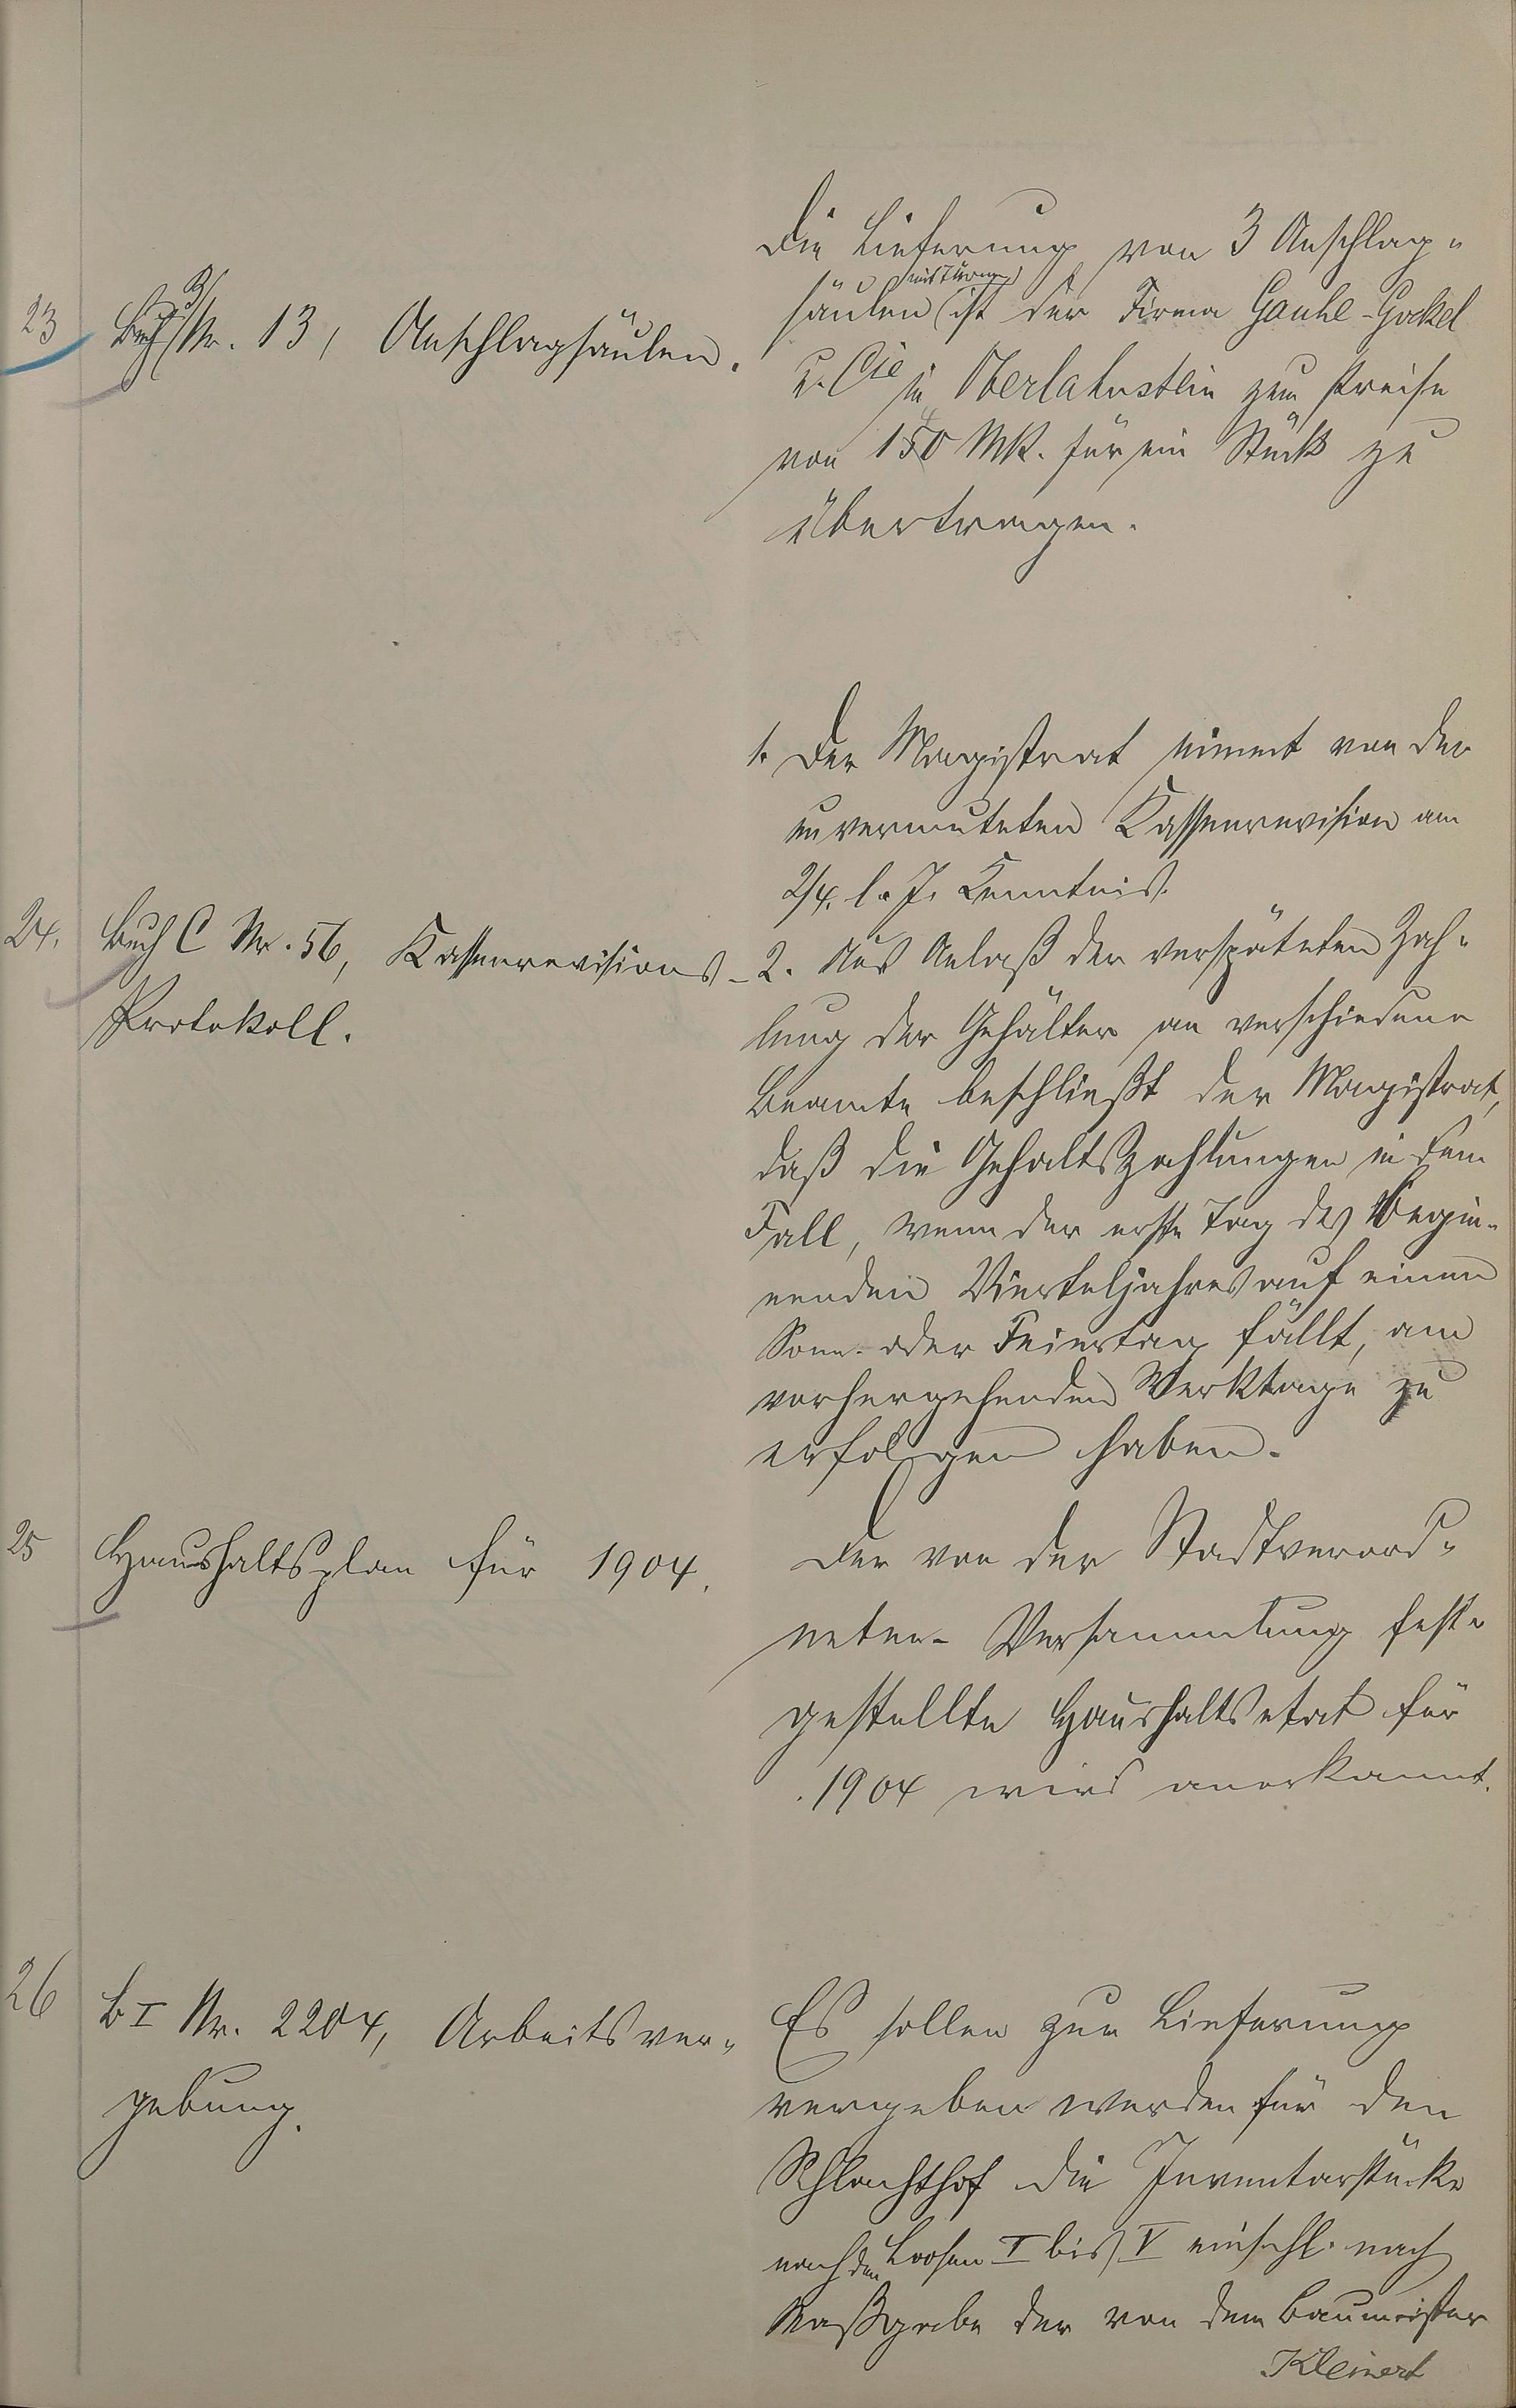 23
Buch B Nr. 13, Anschlagsäulen.
Die Lieferung von 3 Anschlag-
säulen (mit Türen) ist der Firma Gauhe-Gockel
u. Cie in Oberlahnstein zum Preise
von 140 Mk. für ein Stück zu
übertragen.
24.
Buch C Nr. 56, Kassenrevisions-
Protokoll.
1. Der Magistrat nimmt von der
unvermuteten Kassenrevision am
2/4. l. J. Kenntnis.
2. Aus Anlaß der verspäteten Zah-
lung der Gehälter an verschiedene
Beamte beschließt der Magistrat,
daß die Gehaltszahlungen in dem
Fall, wenn der erste Tag des begin-
nenden Vierteljahres auf einen
Sonn- oder Feiertag fällt, am
vorhergehenden Werktage zu
erfolgen haben.
25
Haushaltsplan für 1904.
Der von der Stadtverord-
neten-Versammlung fest-
gestellte Haushaltsetat für
1904 wird anerkannt.
26
B I Nr. 2204, Arbeitsver-
gebung.
Es sollen zur Lieferung
vergeben werden für den
Schlachthof die Inventarstücke
nach den Loosen I bis V einschl. nach
Maßgabe der von dem Baumeister
Kleinert